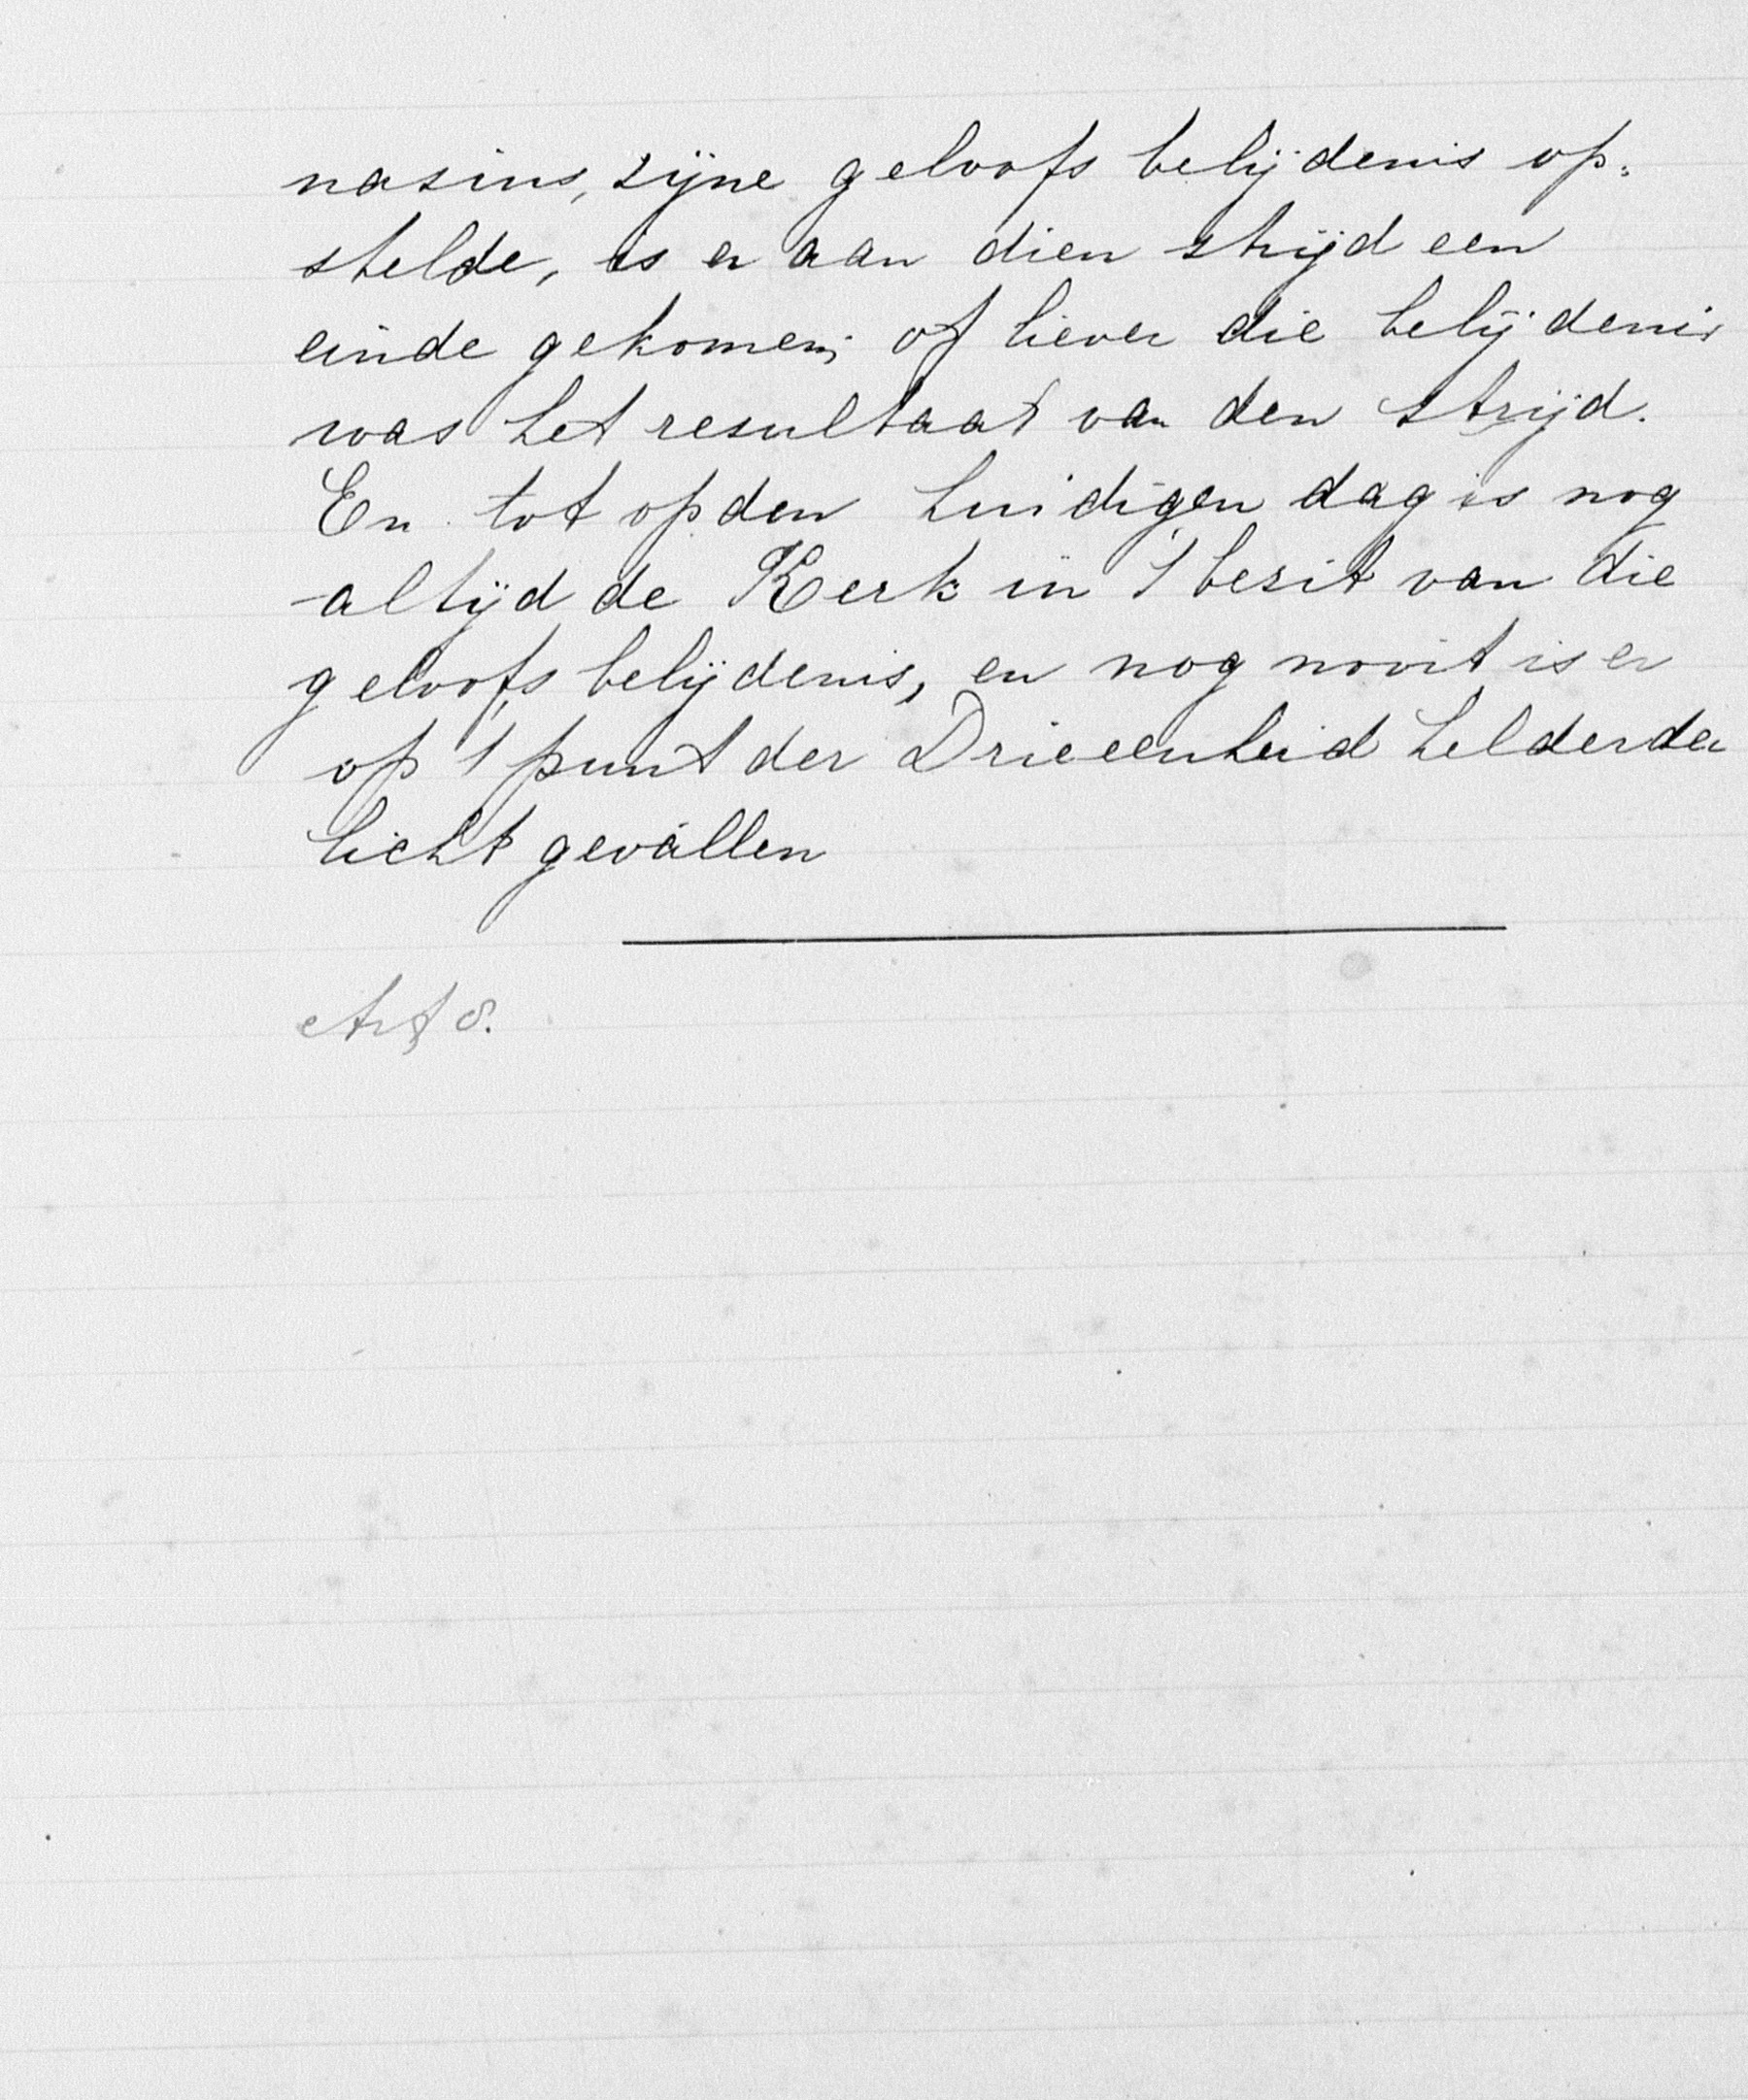 nasius, zijne geloofs belijdenis op-
stelde, is er aan dien strijd een
einde gekomen; of liever die belijdenis
was het resultaat van den strijd.
En tot op den huidigen dag is nog
altijd de Kerk in 't bezit van die
geloofs belijdenis, en nog nooit is er
op 't punt der Drieeenheid helderder
licht gevallen
Art 8.